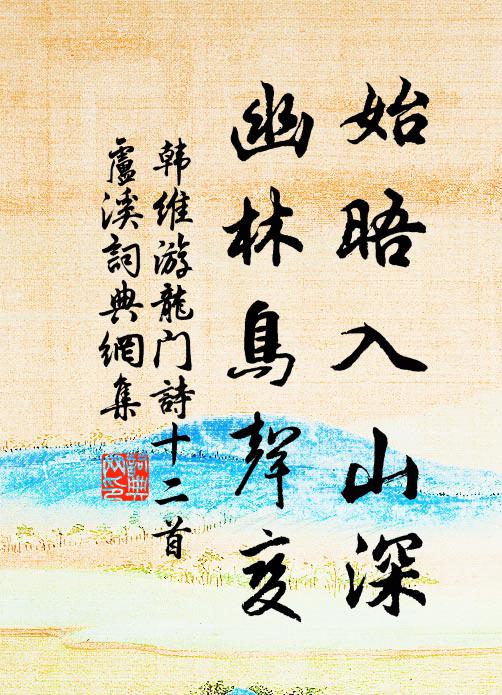 始晤入山深
幽林鳥聲变
韩维游龍门詩十二首
盧溪詞典網集